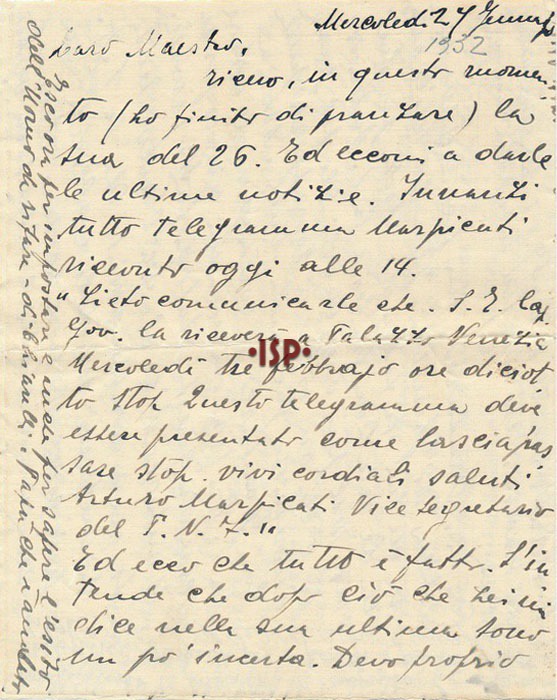 Mercoledì 27 Gennajo
1932
Caro Maestro,
ricevo, in questo momen
to (ho finito di pranzare) la
sua del 26. Ed eccomi a darle
le ultime notizie. Innanzi
tutto telegramma Marpicati
ricevuto oggi alle 14.
"Lieto comunicarle che. S. E. Cap
Gov. la riceverà a Palazzo Venezia
Mercoledì tre febbrajo ore diciot
to stop Questo telegramma deve
essere presentato come lasciapas
sare stop. vivi cordiali saluti
Arturo Marpicati Vice Segretario
del P. N. F."
Ed ecco che tutto è fatto. S'in
tende che dopo ciò che Lei mi
dice nella sua ultima sono
un po' incerta. Devo proprio
Esco ora per impostare e anche per sapere l'esito
dell'
·ISP·